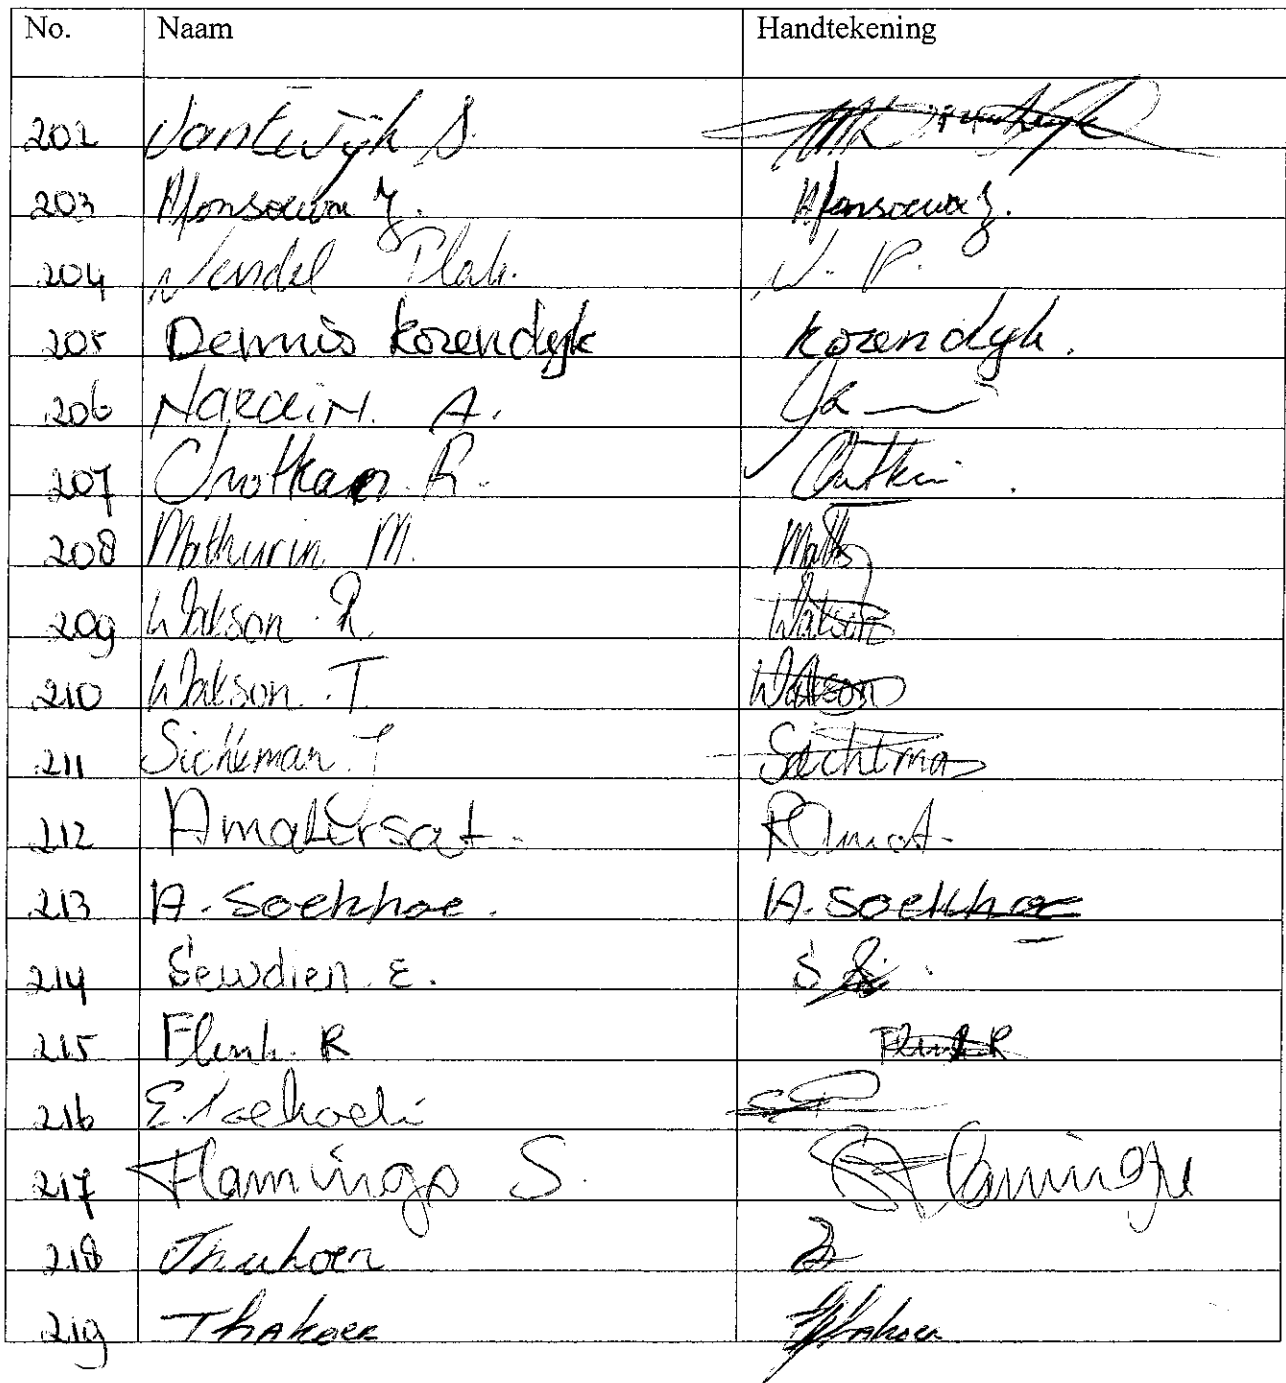 No. Naam Handtekening
202 S.
203
204 Wendel Plak. W. P.
205 Dennis Kozendyk Kozendyk.
206 Naraein. A.
207 Chotkan. R.
208 Mathurin M. Math
209 Watson. R Watson
210 Watson. T Watson
211 Sichtman. J Sichtman
212 Amatirsat.
213 A. Soekhoe. A. Soekhoe
214 Sewdien. E. S
215 Flink. R Flink R
216 E.
217 Flamingo S. Flamingo
218 Thakoer
219 Thakoer Thakoer